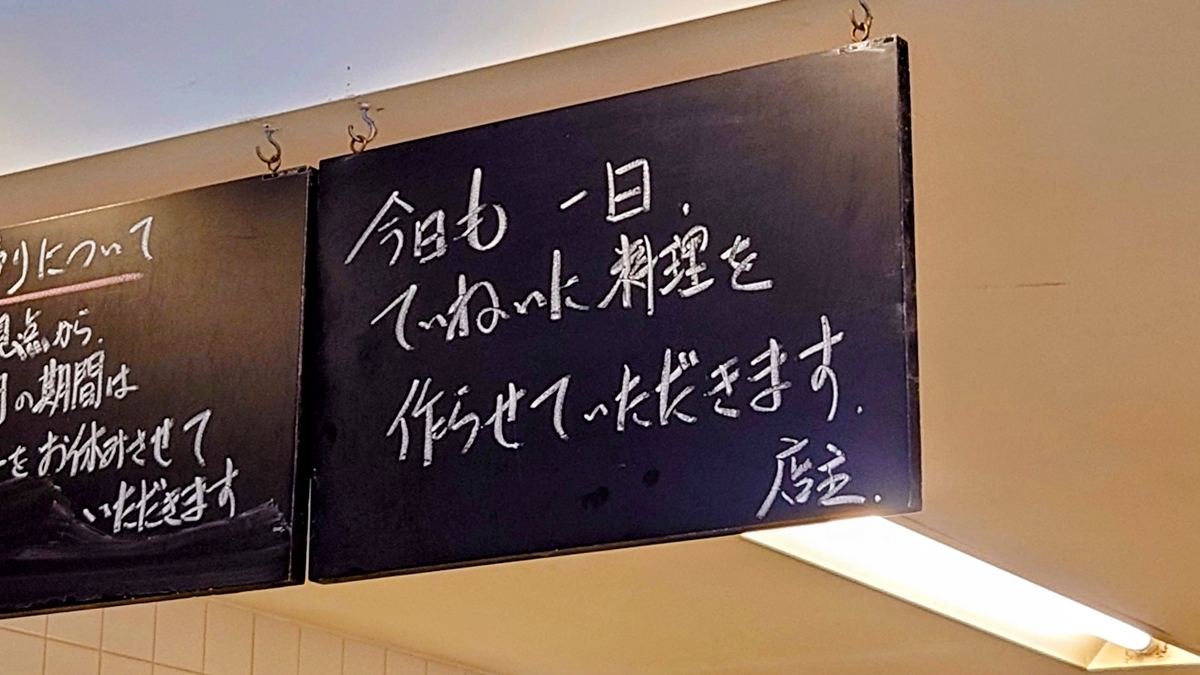 りについて
から.
の期間は
をお休みさせて
いただきます
今日も 一日.
ていねいに料理を
作らせていただきます.
店主.